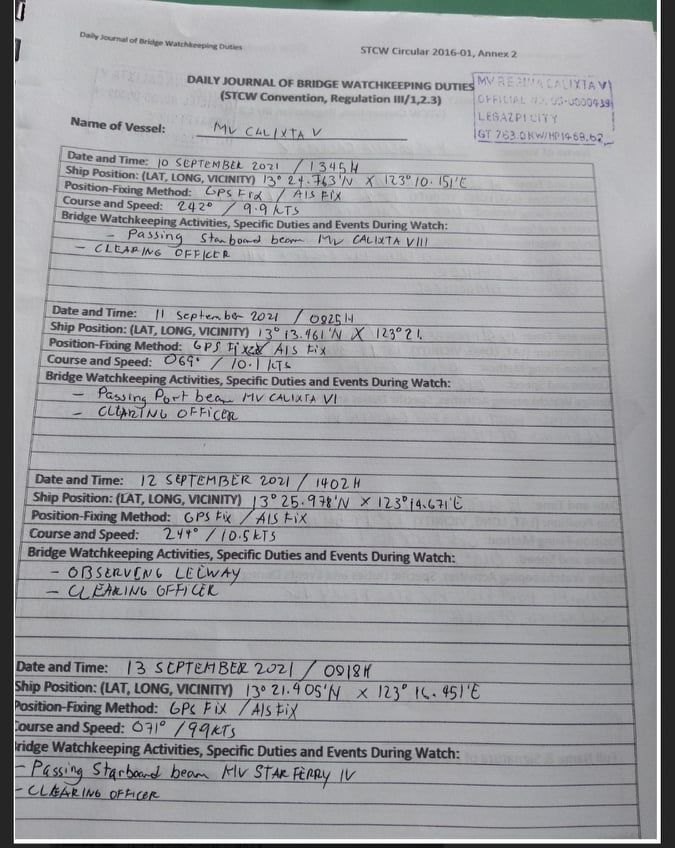 Daily Journal of Bridge Watchkeeping Duties
STCW Circular 2016-01, Annex 2
DAILY JOURNAL OF BRIDGE WATCHKEEPING DUTIES
(STCW Convention, Regulation III/1,2.3)
MV REGINA CALIXTA V
OFFICIAL
LEGAZPI CITY
GT 763.0 KW/HP1469.62
Name of Vessel: MV CALIXTA V
Date and Time: 10 SEPTEMBER 2021 / 1345H
Ship Position: (LAT, LONG, VICINITY) 13° 24.763'N X 123° 10.151'E
Position-Fixing Method: GPS Fix / AIS FIX
Course and Speed: 242° / 9.9 KTS
Bridge Watchkeeping Activities, Specific Duties and Events During Watch:
- Passing Starboard beam MV CALIXTA VIII
- CLEARING OFFICER
Date and Time: 11 September 2021 / 0825H
Ship Position: (LAT, LONG, VICINITY) 13° 13.461'N X 123° 21.
Position-Fixing Method: GPS Fixed / AIS Fix
Course and Speed: 069° / 10.1 KTS
Bridge Watchkeeping Activities, Specific Duties and Events During Watch:
- Passing Port beam MV CALIXTA VI
- CLEARING OFFICER
Date and Time: 12 SEPTEMBER 2021 / 1402H
Ship Position: (LAT, LONG, VICINITY) 13° 25.978'N X 123° 14.671'E
Position-Fixing Method: GPS Fix / AIS FIX
Course and Speed: 244° / 10.5 KTS
Bridge Watchkeeping Activities, Specific Duties and Events During Watch:
- OBSERVING LEEWAY
- CLEARING OFFICER
Date and Time: 13 SEPTEMBER 2021 / 0918H
Ship Position: (LAT, LONG, VICINITY) 13° 21.405'N X 123° 16.451'E
Position-Fixing Method: GPS FIX / AIS FIX
Course and Speed: 071° / 99 KTS
Bridge Watchkeeping Activities, Specific Duties and Events During Watch:
- Passing Starboard beam MV STAR FERRY IV
- CLEARING OFFICER